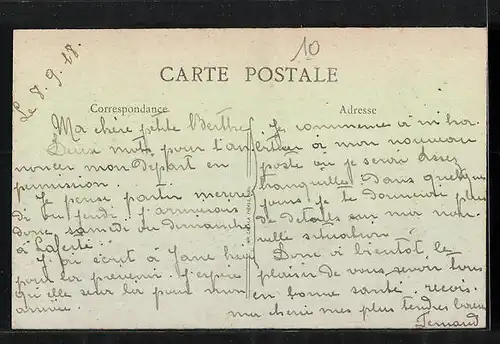 10
Le 8.9.18.
CARTE POSTALE
Correspondance
Adresse
Ma chère petite Berthe
Deux mots pour t'an
noncer mon Depart en
permission.
Je pense partir mercre
di ou jeudi j'arriverais
donc samedi ou Dimanche
à
J'ai écrit à Jane hier
pour la prevenir. J'espère
qu'elle sera là pour mon
arrivée.
Je commence à m'ha
bituer à mon nouveau
poste ou je serai assez
tranquille. Dans quelques
jours je te donnerai plus
de details sur ma nou
velle situation.
Donc à bientot, le
plaisir de vous revoir tous
en bonne santé. recois
ma cherie mes plus tendres baisers
Fernand